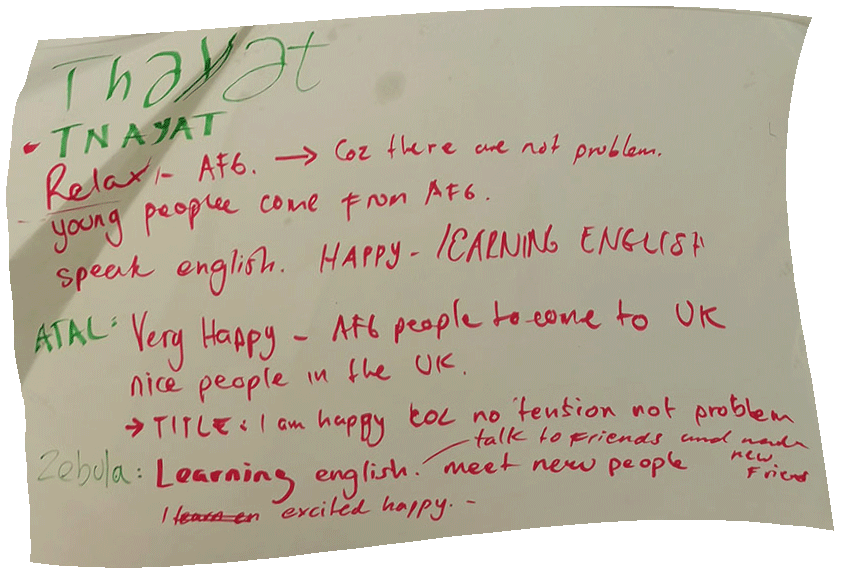 Thayat
• TNAYAT
Relax:- AFG. → Coz there are not problem.
young people come from AFG.
speak english. HAPPY - LEARNING ENGLISH
ATAL: Very Happy - AFG people to come to UK
nice people in the UK.
→ TITLE: I am happy coz no tension not problem
talk to Friends and
new
Friend
Zebula: Learning english. meet new people
I learn en excited happy. -